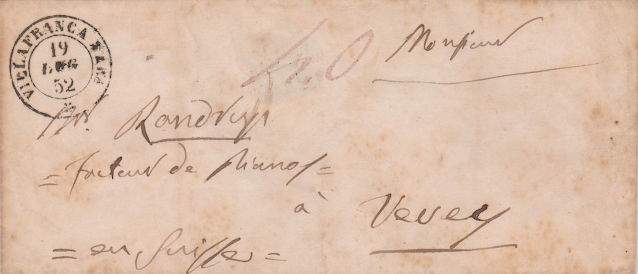 VILLAFRANCA
19
LUG
52
40
Monsieur
Mr. Randreys
= facteur de Pianos =
à Vevey
= en Suisse =